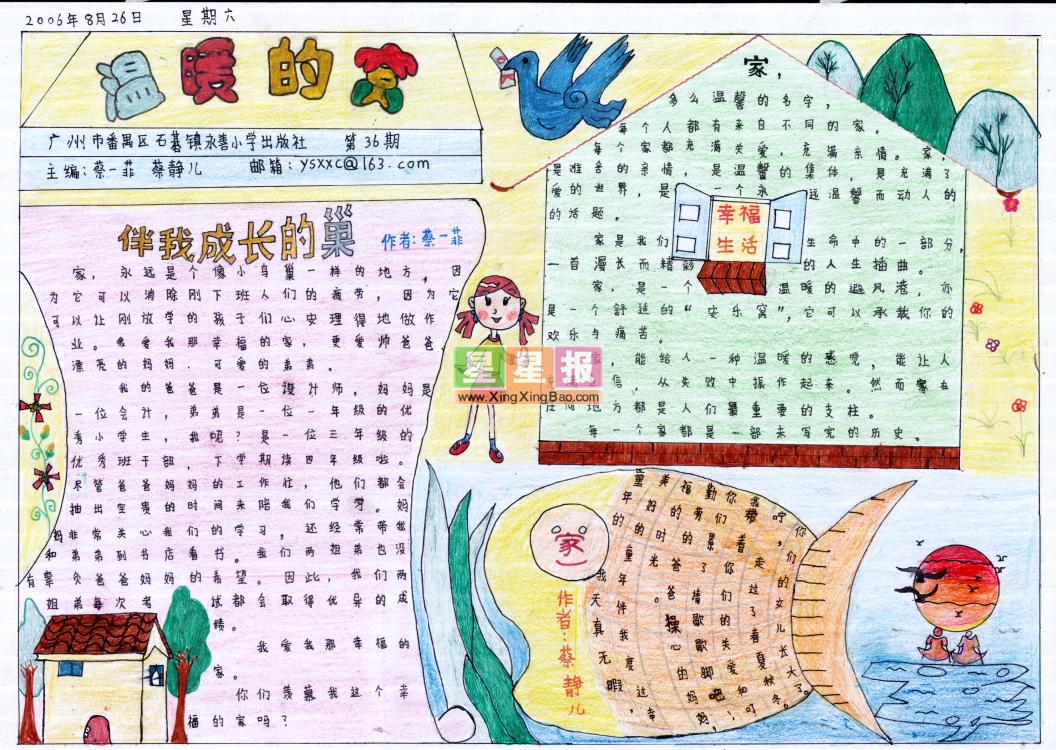 2006年8月26日 星期六
温暖的家
广州市番禺区石碁镇永善小学出版社 第36期
主编:蔡一菲 蔡静儿 邮箱:ysxxc@163.com
伴我成长的巢
作者:蔡一菲
家，永远是个像小鸟巢一样的地方，因
为它可以消除刚下班人们的疲劳，因为它
可以让刚放学的孩子们心安理得地做作
业。我爱我那幸福的家，更爱帅爸爸
漂亮的妈妈.可爱的弟弟。
我的爸爸是一位设计师，妈妈是
一位会计，弟弟是一位一年级的优
秀小学生，我呢?是一位三年级的
优秀班干部，下学期读四年级啦。
尽管爸爸妈妈的工作忙，他们都会
抽出宝贵的时间来陪我们学习。妈
妈非常关心我们的学习，还经常带我
和弟弟到书店看书。我们两姐弟也没
有辜负爸爸妈妈的希望。因此，我们两
姐弟每次考试都会取得优异的成
绩。
我爱我那幸福的
家。
你们羡慕我这个幸
福的家吗?
家，
多么温馨的名字，
每个人都有来自不同的家。
每个家都充满关爱，充满亲情。家，
是难舍的亲情，是温馨的集体，是充满了
爱的世界，是一个永远温馨而动人的
的话题。
幸福
生活
家是我们生命中的一部分，
一首漫长而精彩的人生插曲。
家，是一个温暖的避风港，亦
是一个舒适的“安乐窝”，它可以承载你的
欢乐与痛苦。
家，能给人一种温暖的感觉，能让人
信，从失败中振作起来。然而家在
任何地方都是人们最重要的支柱。
每一个家都是一部未写完的历史。
星星报
www.XingXingBao.com
家
作者:蔡静儿